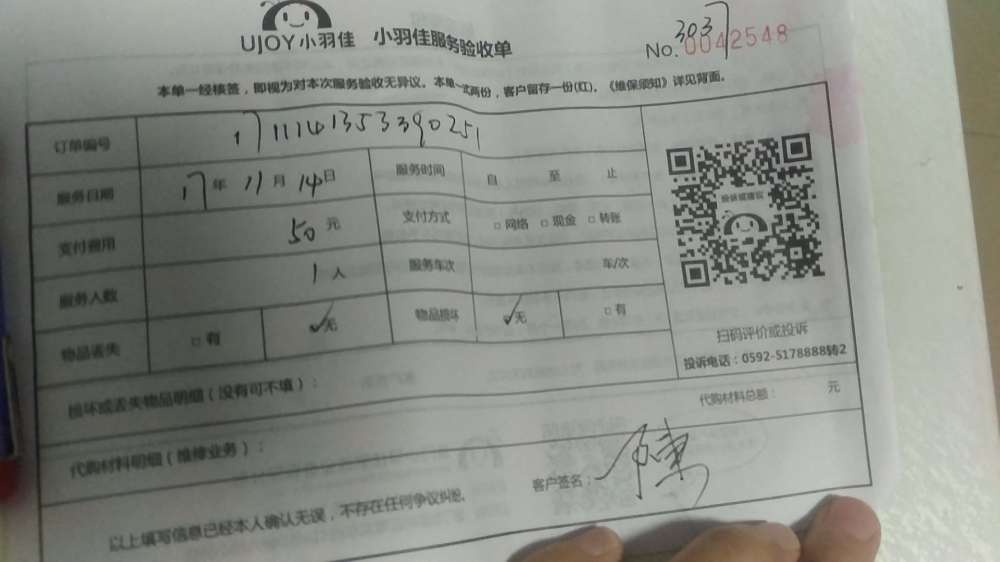 UJOY小羽佳 小羽佳服务验收单
3037
No. 0042548
本单一经核签，即视为对本次服务验收无异议。本单一式两份，客户留存一份(红)。《维保须知》详见背面。
订单编号 1711141353390251
服务日期 17年11月14日 服务时间 自 至 止
支付费用 50元 支付方式 □网络 □现金 □转账
服务人数 1人 服务车次 车/次
物品丢失 □有 ✓无 物品损坏 ✓无 □有
扫码评价或投诉
投诉电话：0592-5178888转2
损坏或丢失物品明细（没有可不填）：
代购材料明细（维修业务）： 代购材料总额： 元
以上填写信息已经本人确认无误，不存在任何争议纠纷。 客户签名：